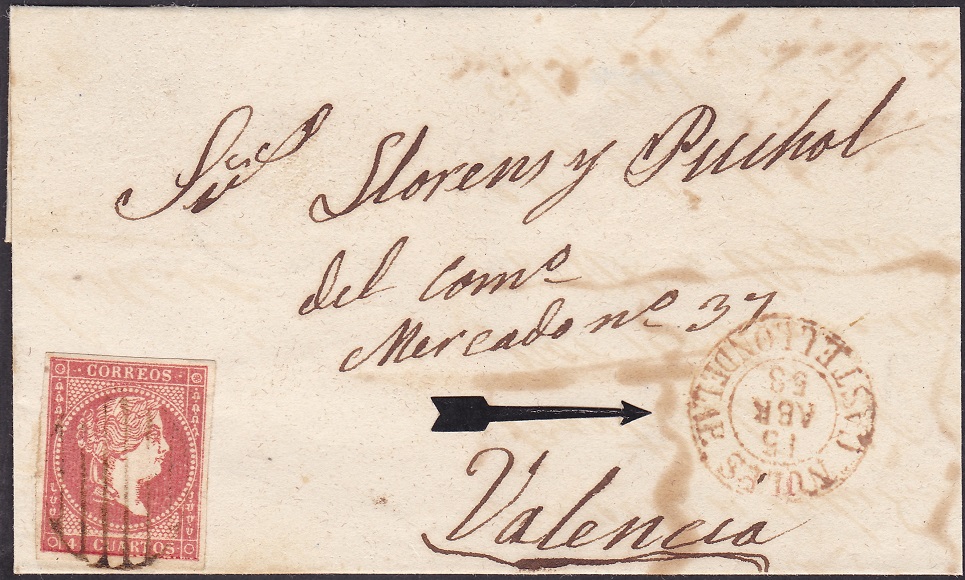 Sres Llorens y Puchol
del Como
Mercado nº 37
Valencia
CORREOS
4 CUARTOS
NULES
CASTELLON DE LA P.
15
ABR
58